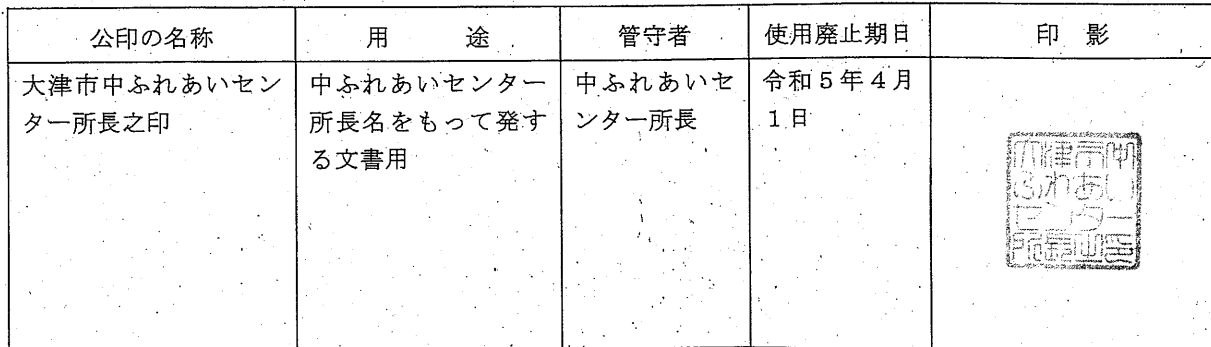 公印の名称 用 途 管守者 使用廃止期日 印 影
大津市中ふれあいセン
ター所長之印
中ふれあいセンター
所長名をもって発す
る文書用
中ふれあいセ
ンター所長
令和5年4月
1日
大津市中
ふれあい
センター
所長之印